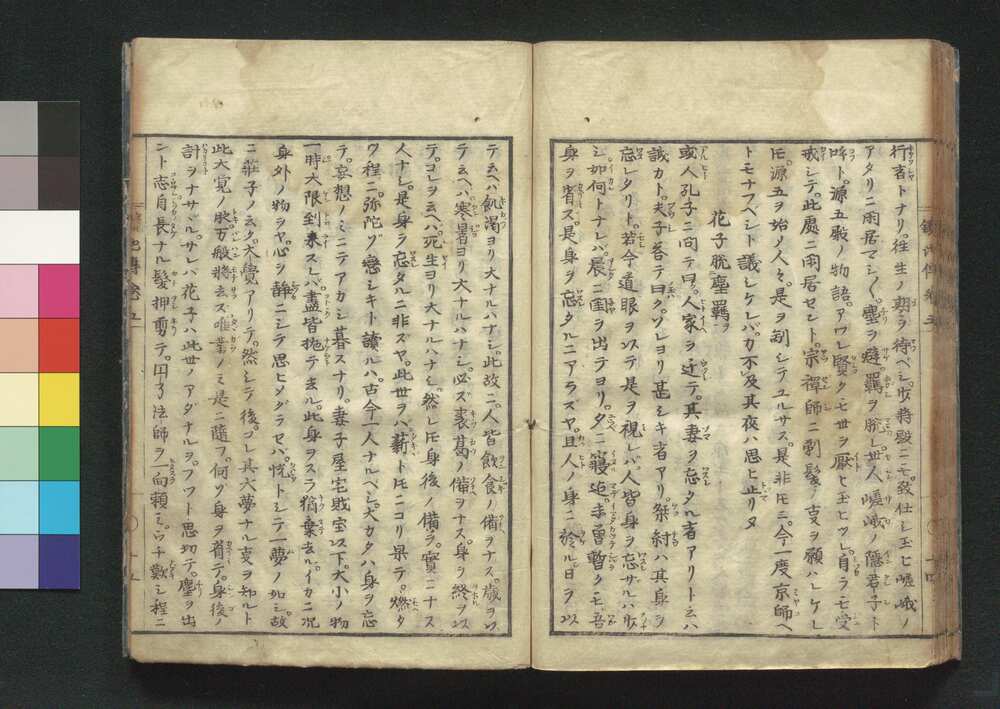 行者トナリ。往生ノ期ヲ待ベシ。歩将殿ニモ。致仕シ玉ヒ嵯峨ノ
アタリニ閑居マシ〱。塵ヲ避。羈ヲ脱レ。世人嵯峨ノ隠君子ト
呼ト。源五殿ノ物語。アワレ賢クモ世ヲ厭ヒ玉ヒツレ。自ラモ受
戒シテ。此處ニ閑居セント。宗禅師ニ剃髪ノ支ヲ願ハレケレ
𪜈。源五ヲ始ノ人々。是ヲ制シテユルサス。是非𪜈ニ。今一度京師ヘ
トモナフベシト議シケレバ。力不及其夜ハ思ヒ止リヌ
花子脱塵羈ヲ
或人孔子ニ問テ曰。人家ヲ迁テ。其妻ヲ忘タル者アリト云ハ
誠カト。夫子荅テ曰ク。ソレヨリ甚シキ者アリ。桀紂ハ其身ヲ
忘レタリト。若今道眼ヲ以テ是ヲ視レバ。人皆身ヲ忘ザルハ少
シ。如何トナレバ。晨ニ圊ヲ出テヨリ。夕ニ寝迄。未曽暫クモ。吾
身ヲ省ス。是身ヲ忘タルニアラズヤ。且人ノ身ニ於ル。日ヲ以
テ云ヘバ飢渇ヨリ大ナルハナシ。此故ニ。人皆飲食ノ備ヲナス。歳ヲ以
テ云ヘハ寒暑ヨリ大ナルハナシ。必ズ裘葛ノ備ヲナス。身ヲ終ヲ以
テ。コレヲ云ヘハ。死生ヨリ大ナルハナシ。然レ𪜈身後ノ備ヲ。實ニナス
人ナシ。是身ヲ忘タルニ非ズヤ。此世ヲハ薪ト𪜈ニコリ果テ。燃タ
ツ程ニ。弥陀ゾ戀シキト讀ルハ。古今一人ナルベシ。大カタハ身ヲ忘
テ。妄想ノミニテアカシ暮スナリ。妻子屋宅財宝以下。大小ノ物
一時大限到来スレバ。盡皆抛テ去ル。此身ヲスラ猶棄去ル。イカニ况
身外ノ物ヲヤ。心ヲ静ニシテ思ヒメグラセバ。恍トシテ一夢ノ如シ。故
ニ莊子ノ云ク。大覺アリテ。然シテ後。コレ其大夢ナル支ヲ知ルト
此大寛ノ所。万般將去ス。唯業ノミ是ニ随フ。何ゾ身ヲ省テ。身後ノ
計ヲナサヾル。サレバ花子ハ。此世ノアダナルヲ。フツト思切テ。塵ヲ出
ント志。身長ナル髪押剪テ。円了法師ヲ一向頼ミ。ウチ歎シ程ニ